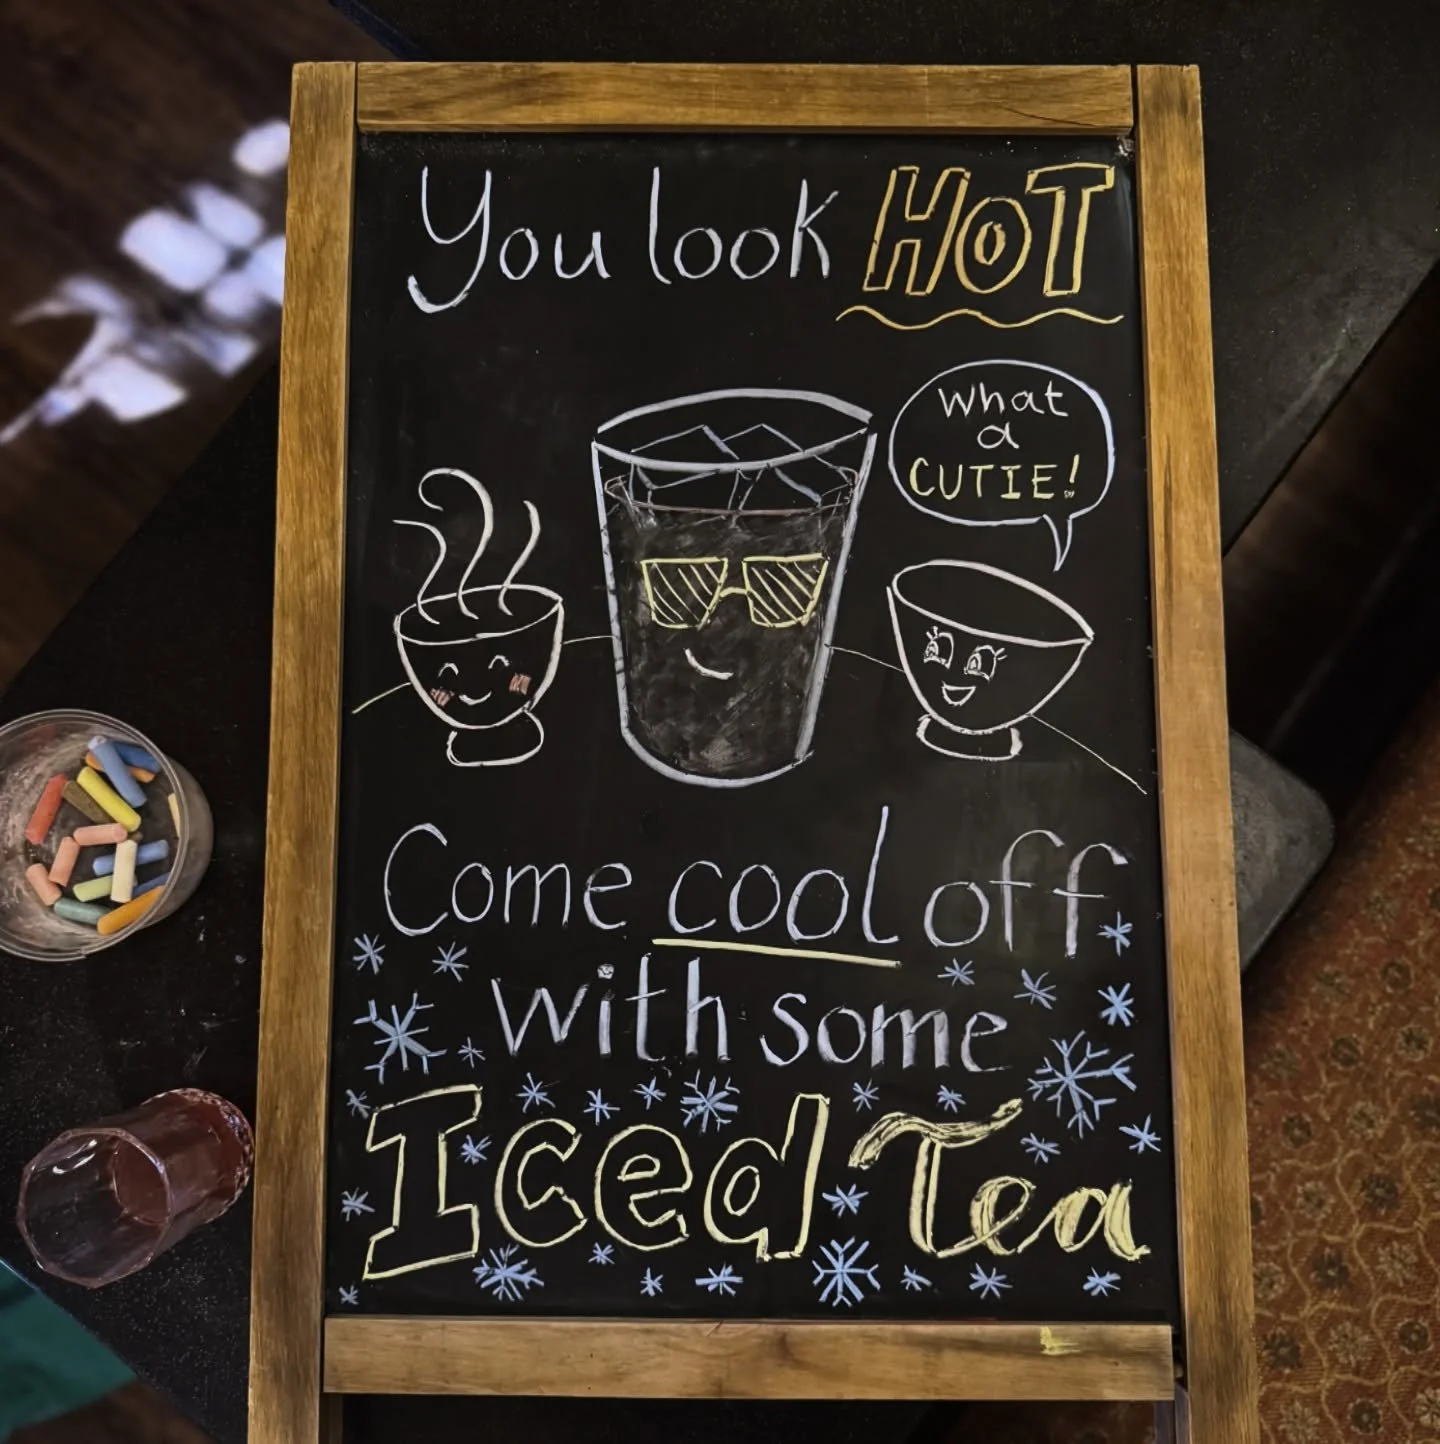 You look HOT
What
a
CUTIE!
Come cool off
with some
Iced Tea